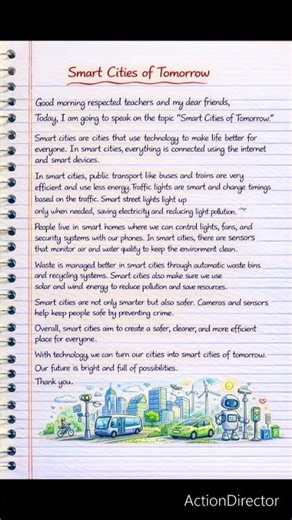 Smart Cities of Tomorrow
Good morning respected teachers and my dear friends,
Today, I am going to speak on the topic "Smart Cities of Tomorrow."
Smart cities are cities that use technology to make life better for
everyone. In smart cities, everything is connected using the internet
and smart devices.
In smart cities, public transport like buses and trains are very
efficient and use less energy. Traffic lights are smart and change timings
based on the traffic. Smart street lights light up
only when needed, saving electricity and reducing light pollution.
People live in smart homes where we can control lights, fans, and
security systems with our phones. In smart cities, there are sensors
that monitor air and water quality to keep the environment clean.
Waste is managed better in smart cities through automatic waste bins
and recycling systems. Smart cities also make sure we use
solar and wind energy to reduce pollution and save resources.
Smart cities are not only smarter but also safer. Cameras and sensors
help keep people safe by preventing crime.
Overall, smart cities aim to create a safer, cleaner, and more efficient
place for everyone.
With technology, we can turn our cities into smart cities of tomorrow.
Our future is bright and full of possibilities.
Thank you.
ActionDirector